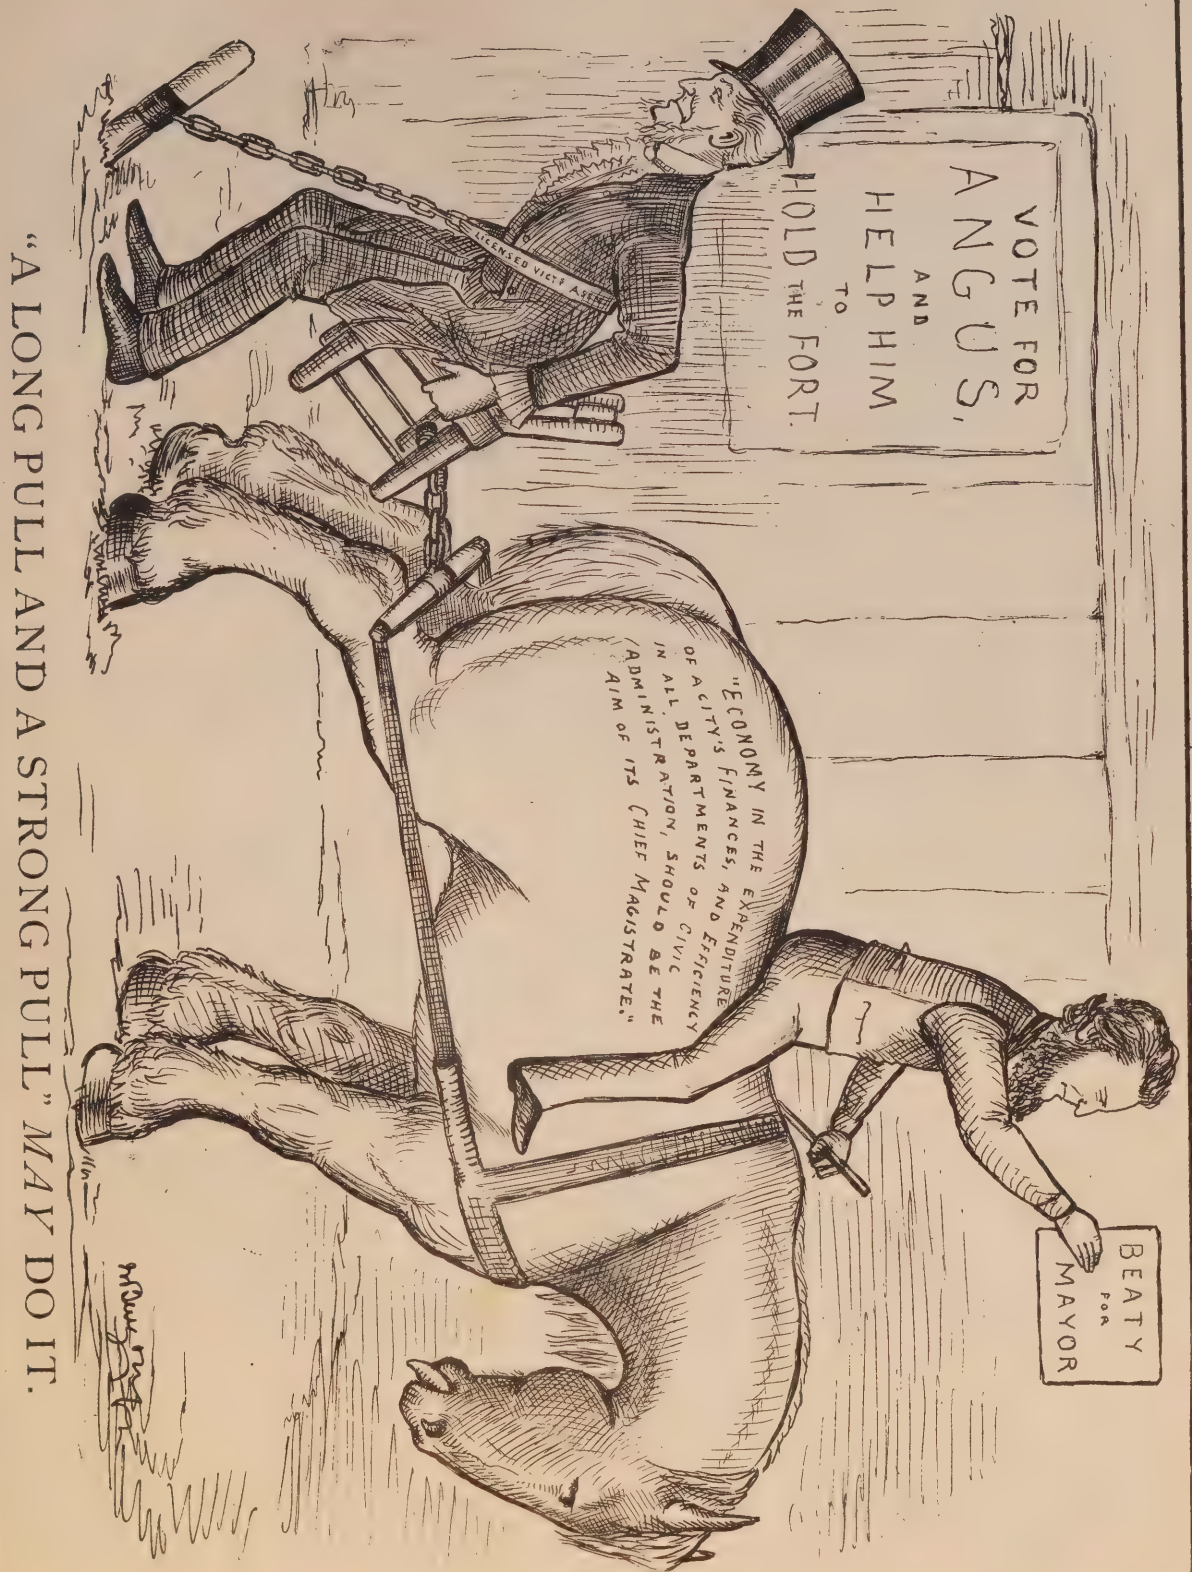 VOTE FOR
ANGUS,
AND
HELP HIM
TO
HOLD THE FORT.
BEATY
FOR
MAYOR
"ECONOMY IN THE EXPENDITURE
OF A CITY'S FINANCES, AND EFFICIENCY
IN ALL DEPARTMENTS OF CIVIC
ADMINISTRATION, SHOULD BE THE
AIM OF ITS CHIEF MAGISTRATE."
LICENSED VICT'S ASS
"A LONG PULL AND A STRONG PULL" MAY DO IT.